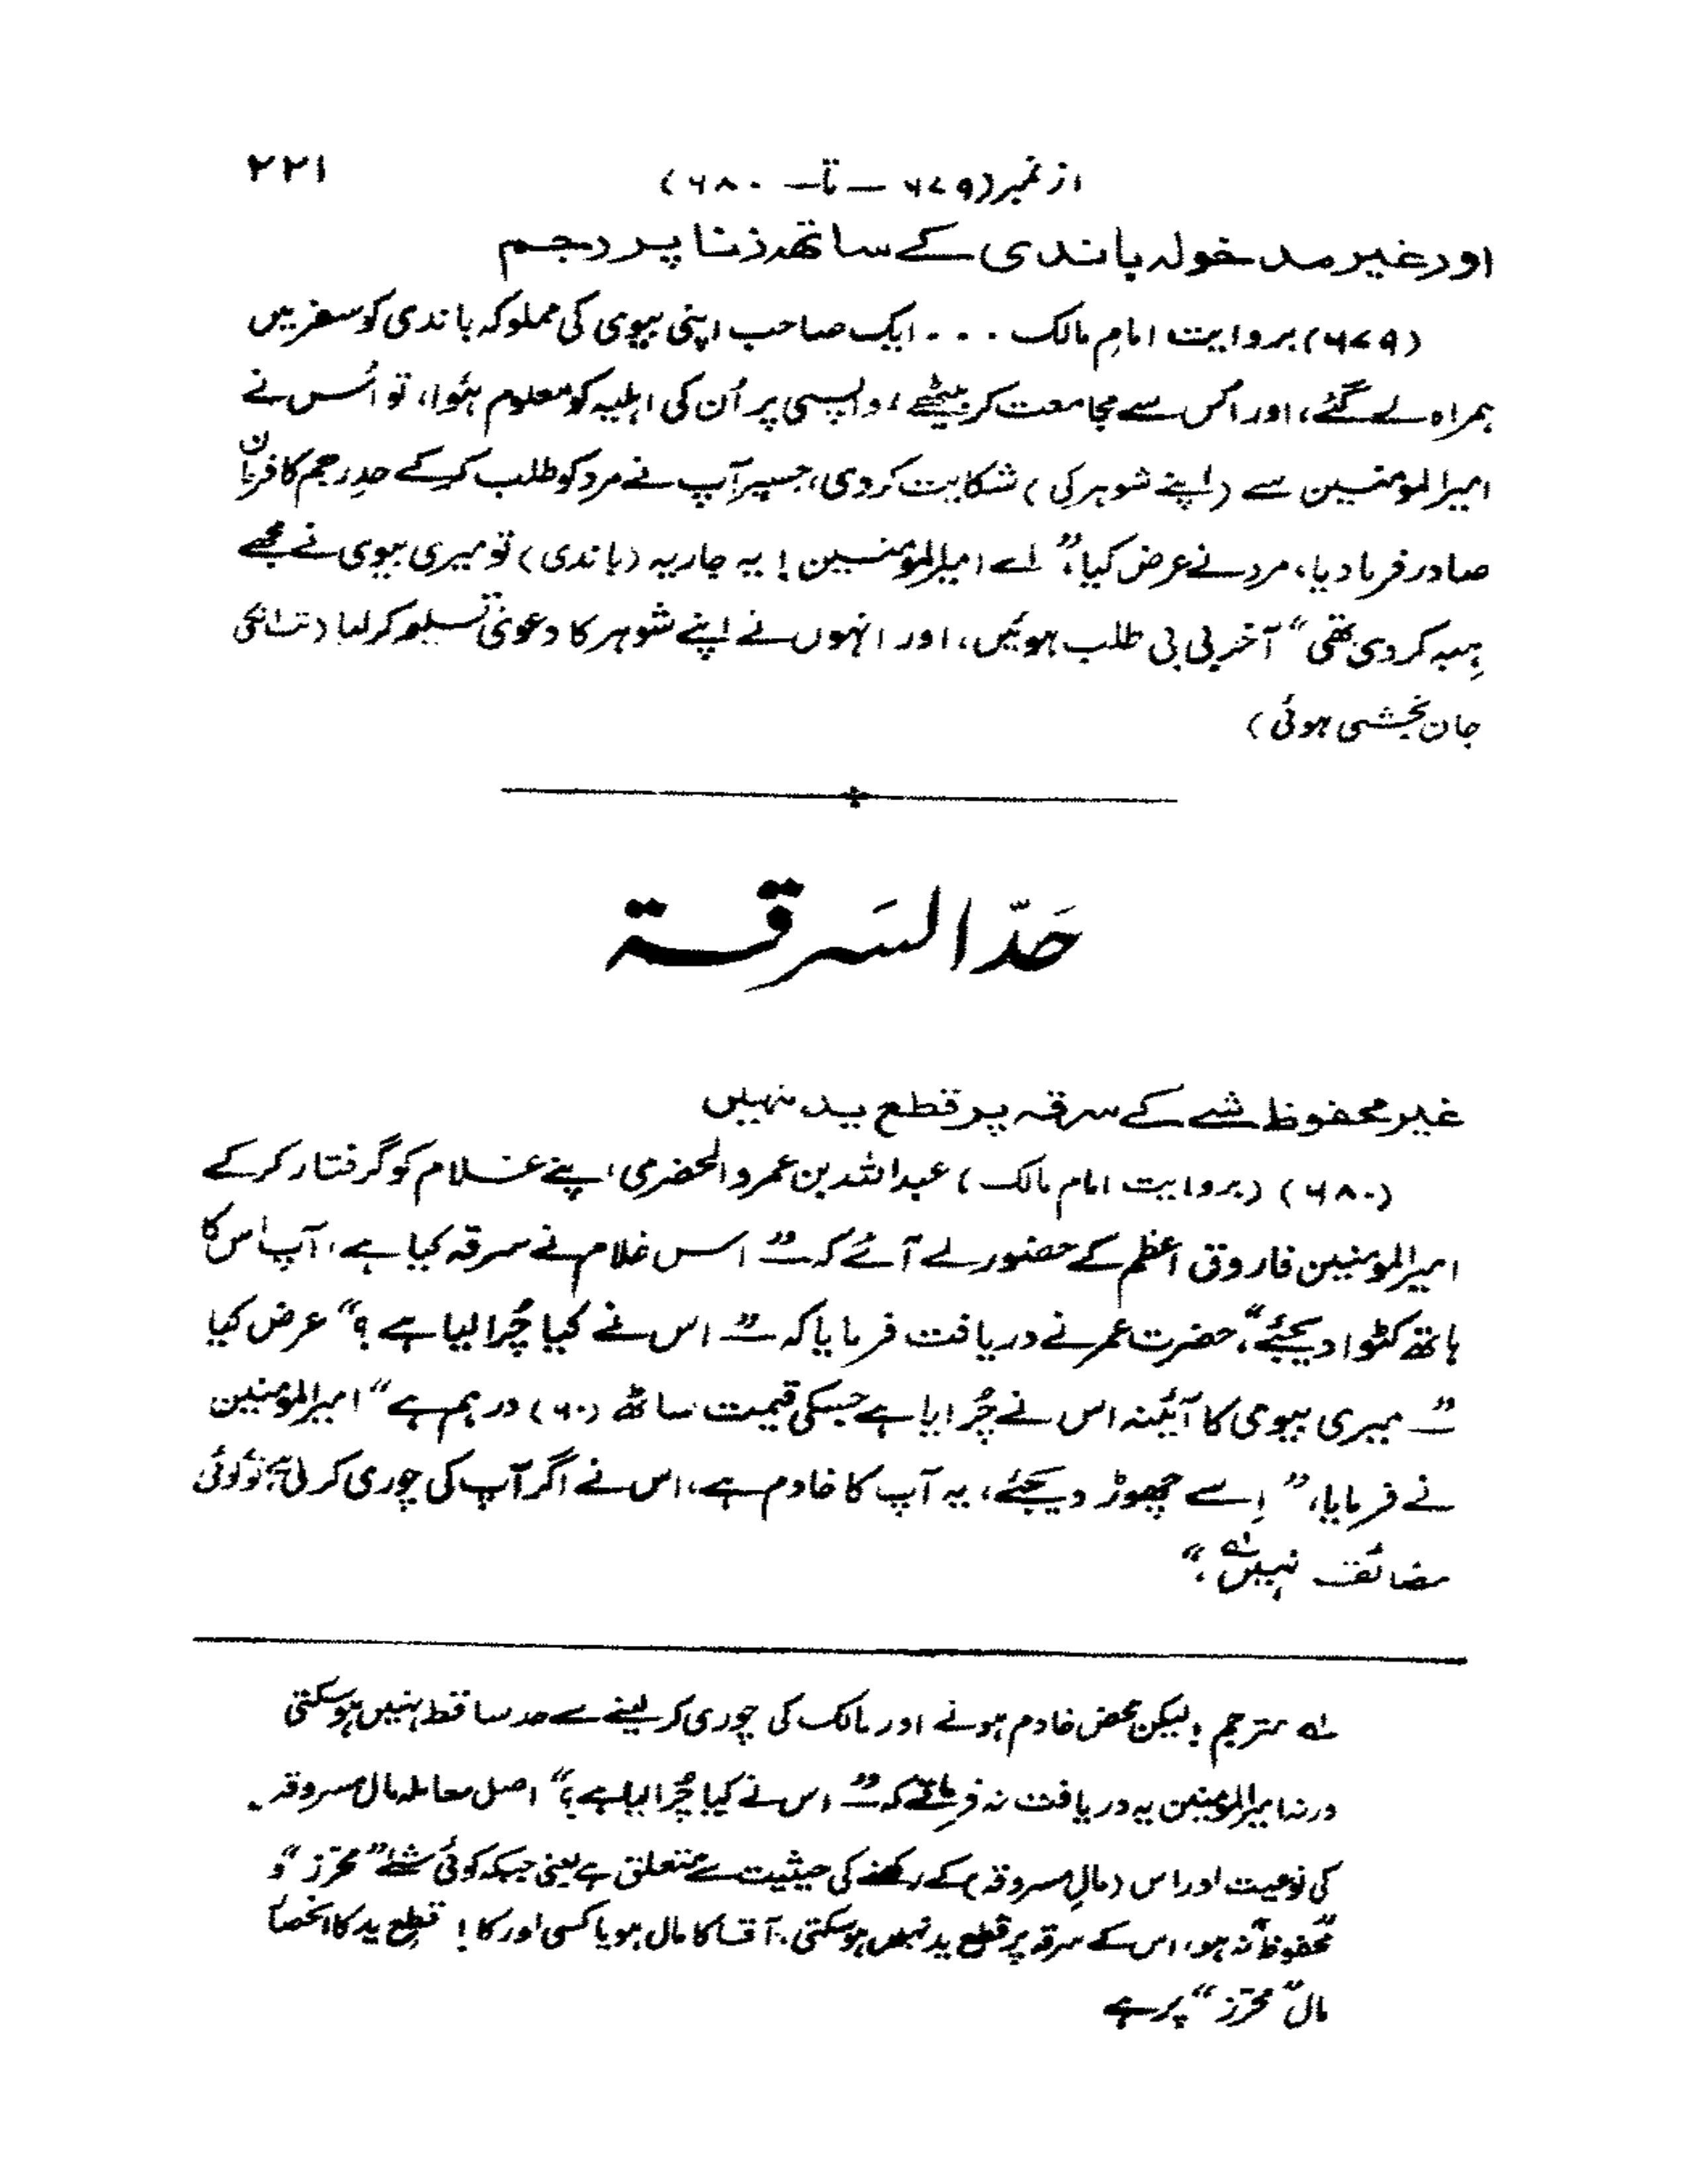 از نمبر (۶۷۹ — تا — ۶۸۰)
۲۲۱
اور غیر مدخولہ باندی کے ساتھ زنا پر رجم
(۶۷۹) بروایت امام مالک . . . ایک صاحب اپنی بیوی کی مملوکہ باندی کو سفر میں
ہمراہ لے گئے، اور اُس سے مجامعت کر بیٹھے، واپسی پر اُن کی اہلیہ کو معلوم ہُوا، تو اُس نے
امیرالمؤمنین سے (اپنے شوہر کی) شکایت کر دی، جسپر آپ نے مرد کو طلب کر کے حدِ رجم کا فرمان
صادر فرما دیا، مرد نے عرض کیا، ”اے امیرالمؤمنین! یہ جاریہ (باندی) تو میری بیوی نے مجھے
ہِبہ کر دی تھی“ آخر بی بی طلب ہوئیں، اور انہوں نے اپنے شوہر کا دعویٰ تسلیم کر لیا (تب انکی
جان بخشی ہوئی)
حَدّ السَرقة
غیر محفوظ شے کے سرقہ پر قطع ید نہیں
(۶۸۰) (بروایت امام مالک) عبداللہ بن عمرو الحضرمی اپنے غلام کو گرفتار کر کے
امیرالمومنین فاروق اعظم کے حضور لے آئے کہ ”اس غلام نے سرقہ کیا ہے، آپ اس کا
ہاتھ کٹوا دیجئے“، حضرت عمر نے دریافت فرمایا کہ ”اس نے کیا چُرا لیا ہے؟“ عرض کیا
”میری بیوی کا آئینہ اس نے چُرایا ہے جسکی قیمت ساٹھ (۶۰) درہم ہے“ امیرالمؤمنین
نے فرمایا، ”اِسے چھوڑ دیجئے، یہ آپ کا خادم ہے، اس نے اگر آپ کی چوری کر لی ہے تو کوئی
مضائقہ نہیں؂۱۔“
؂۱ مترجم: لیکن محض خادم ہونے اور مالک کی چوری کر لینے سے حد ساقط نہیں ہو سکتی
ورنہ امیرالمؤمنین یہ دریافت نہ فرماتے کہ ”اس نے کیا چُرا لیا ہے؟“ اصل معاملہ مال مسروقہ
کی نوعیت اور اس (مالِ مسروقہ) کے رکھنے کی حیثیت سے متعلق ہے یعنی جبکہ کوئی شے ”محرّز“ و
”محفوظ“ نہ ہو، اس کے سرقہ پر قطع ید نہیں ہو سکتی۔ آقا کا مال ہو یا کسی اور کا! قطعِ ید کا انحصار
مال ”محرّز“ پر ہے